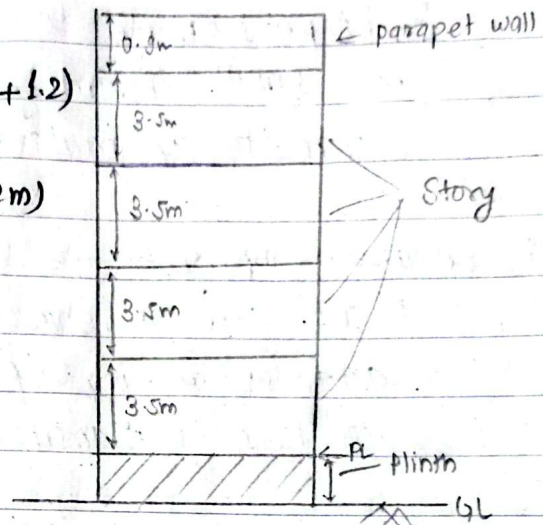 0.9m
← parapet wall
+ 1.2)
3.5m
m)
3.5m
Story
3.5m
3.5m
PL
plinth
GL